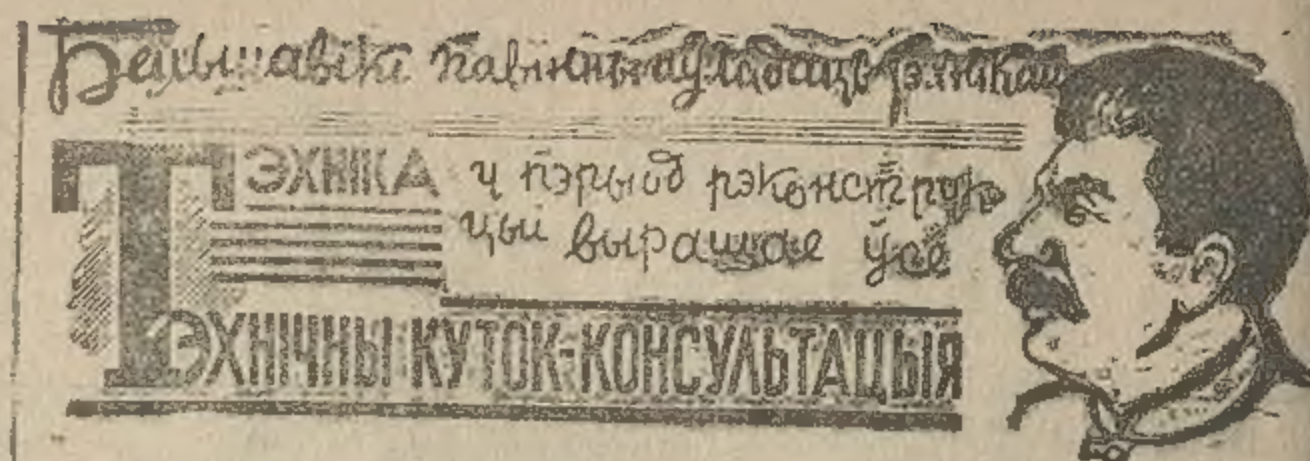 Бальшавікі павінны уладаць тэхнікай
ТЭХНІКА у пэрыод рэконструк
цыі вырашае ўсё
ТЭХНІЧНЫ КУТОК-КОНСУЛЬТАЦЫЯ